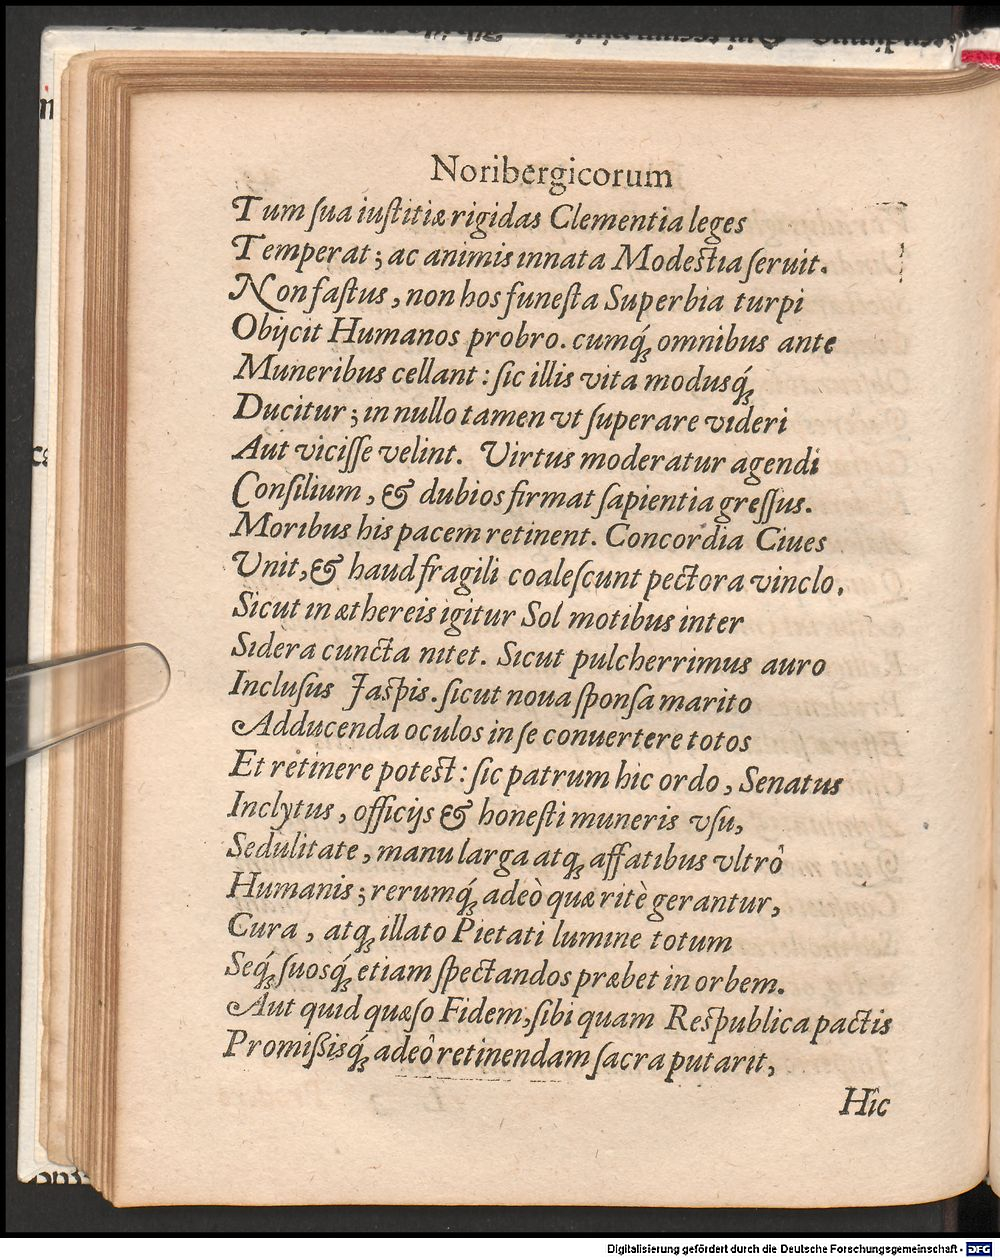 Noribergicorum
Tum ſua iuſtitiæ rigidas Clementia leges
Temperat; ac animis innata Modestia ſeruit.
Non faſtus, non hos funeſta Superbia turpi
Obijcit Humanos probro. cumq́ꝫ omnibus ante
Muneribus cellant: ſic illis vita modusq́ꝫ
Ducitur; in nullo tamen vt ſuperare videri
Aut viciſſe velint. Virtus moderatur agendi
Conſilium, & dubios firmat ſapientia greſſus.
Moribus his pacem retinent. Concordia Ciues
Unit, & haud fragili coaleſcunt pectora vinclo.
Sicut in æthereis igitur Sol motibus inter
Sidera cuncta nitet. Sicut pulcherrimus auro
Incluſus Jaspis. ſicut noua ſponſa marito
Adducenda oculos in ſe conuertere totos
Et retinere potest: ſic patrum hic ordo, Senatus
Inclytus, officijs & honeſti muneris vſu,
Sedulitate, manu larga atqꝫ affatibus vltrò
Humanis; rerumq́ꝫ adeò quæ ritè gerantur,
Cura, atqꝫ illato Pietati lumine totum
Seq́ꝫ ſuosq́ꝫ etiam ſpectandos præbet in orbem.
Aut quid quæſo Fidem, ſibi quam Respublica pactis
Promißisq́ꝫ adeô retinendam ſacra putarit,
Hic
Digitalisierung gefördert durch die Deutsche Forschungsgemeinschaft - DFG